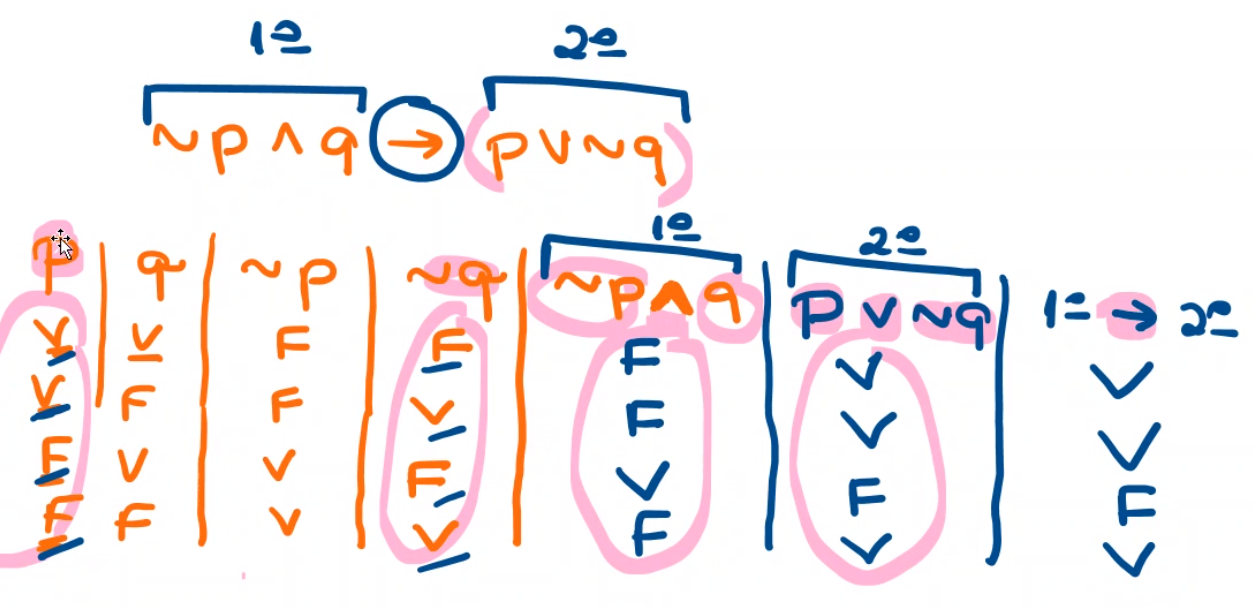 1º 2º
~p ∧ q → (p ∨ ~q)
1º 2º
p q ~p ~q ~p ∧ q p ∨ ~q 1º → 2º
V V F F F V V
V F F V F V V
F V V F V F F
F F V V F V V